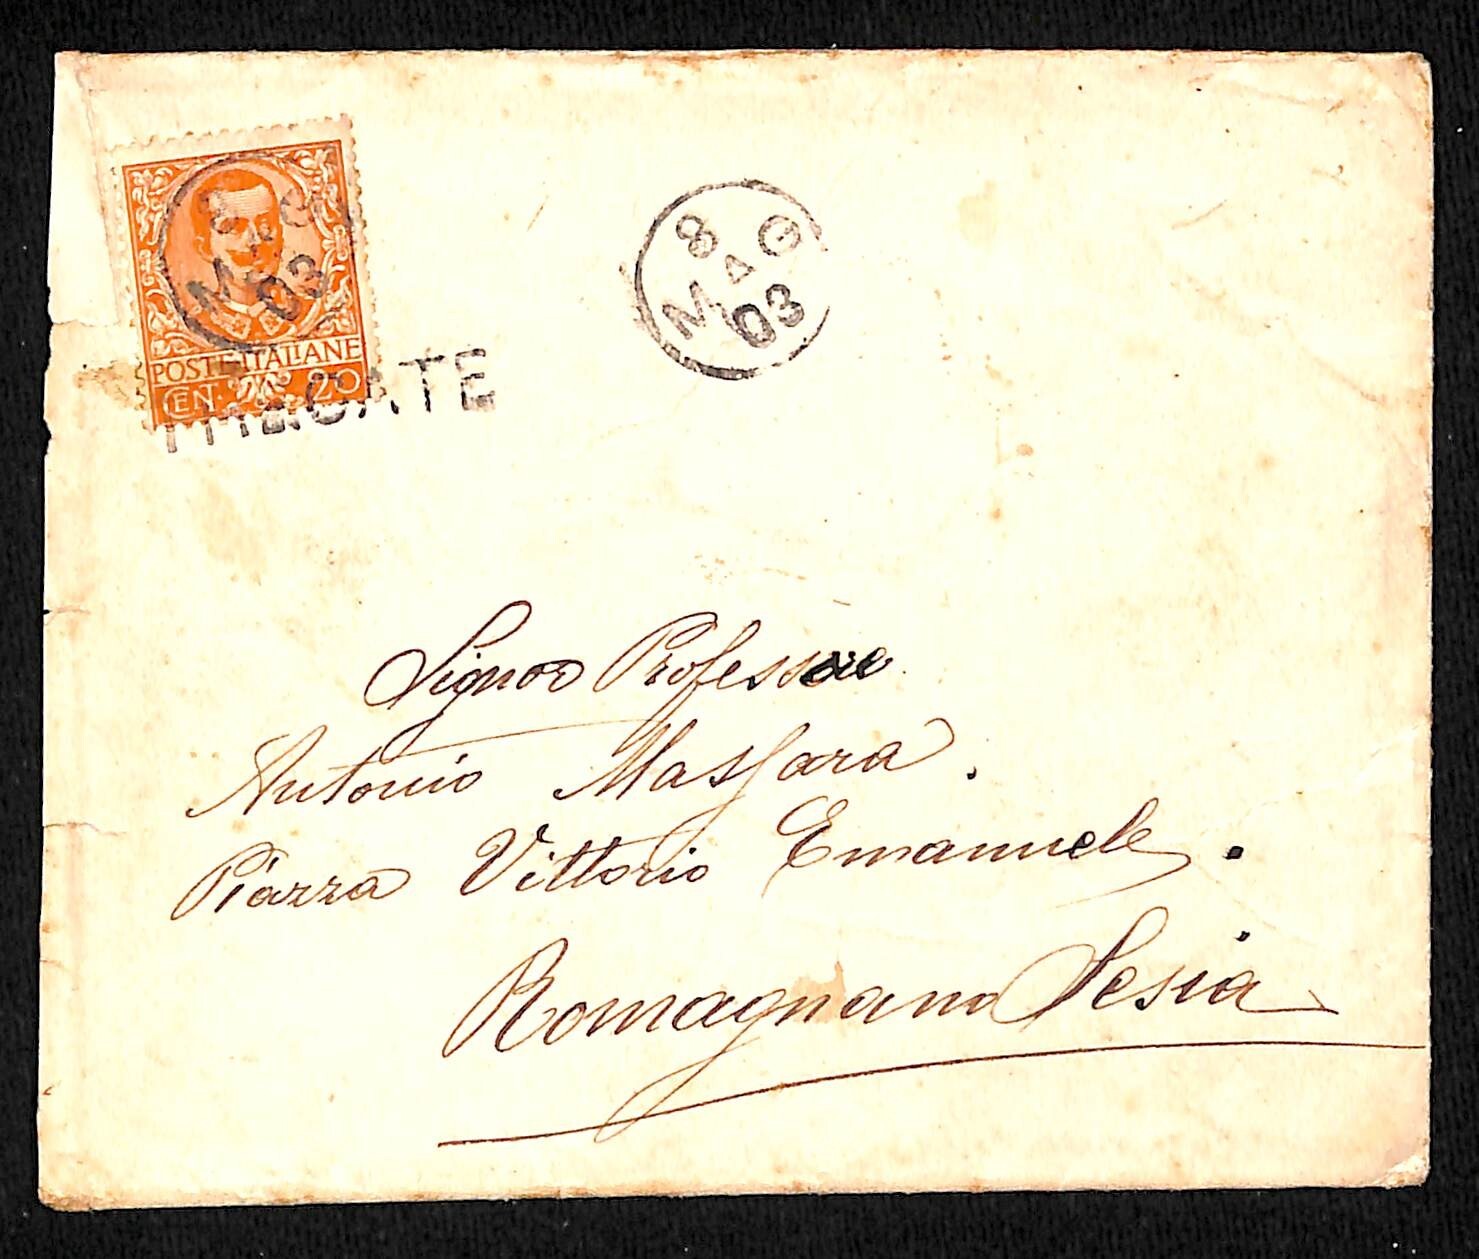 8 MAG 03
8 MAG 03
POSTE ITALIANE
CEN. 20
Signor Professore
Antonio Massara.
Piazza Vittorio Emanuele.
Romagnano Sesia